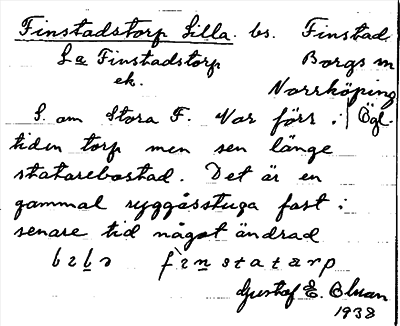 Finstadstorp Lilla. bs. Finstad
La Finstadstorp Borgs m
ek. Norrköping
S. om Stora F. Var förr i Ögl.
tiden torp men sen länge
statarebostad. Det är en
gammal ryggåsstuga fast i
senare tid något ändrad
finstatarp
Gustaf E. Olsson
1938